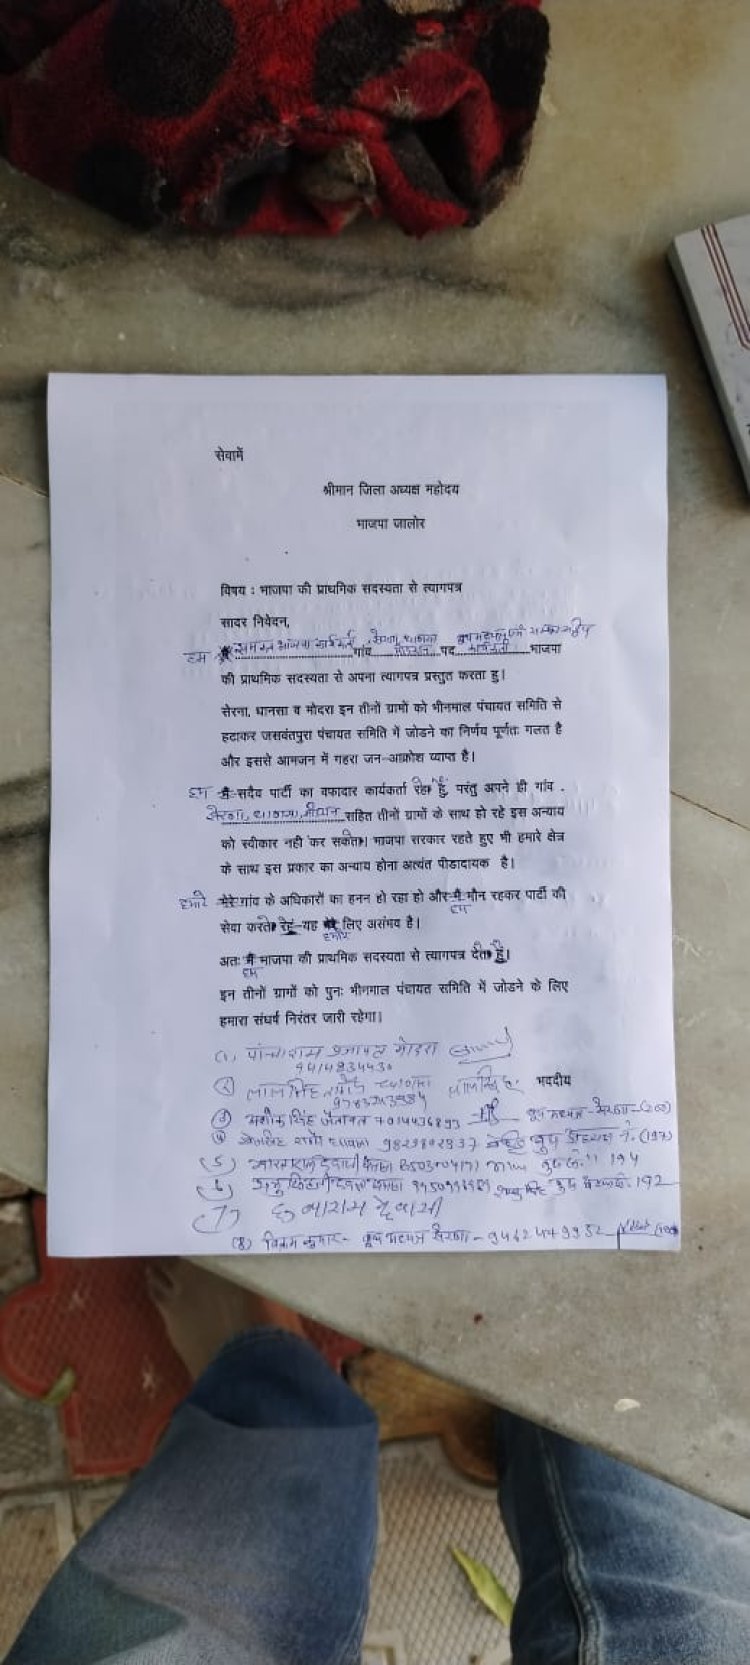 सेवामें
श्रीमान जिला अध्यक्ष महोदय
भाजपा जालोर
विषय : भाजपा की प्राथमिक सदस्यता से त्यागपत्र
सादर निवेदन,
हम समस्त भाजपा कार्यकर्ता गांव सेरणा, धानसा मोदरान पद कार्यकर्ता भाजपा
की प्राथमिक सदस्यता से अपना त्यागपत्र प्रस्तुत करता हु।
सेरना, धानसा व मोदरा इन तीनों ग्रामों को भीनमाल पंचायत समिति से
हटाकर जसवंतपुरा पंचायत समिति में जोडने का निर्णय पूर्णतः गलत है
और इससे आमजन में गहरा जन–आक्रोश व्याप्त है।
हम मैं सदैव पार्टी का वफादार कार्यकर्ता रहे हैं, परंतु अपने ही गांव
सेरणा, धानसा, मोदरान सहित तीनों ग्रामों के साथ हो रहे इस अन्याय
को स्वीकार नही कर सकते। भाजपा सरकार रहते हुए भी हमारे क्षेत्र
के साथ इस प्रकार का अन्याय होना अत्यंत पीडादायक है।
हमारे मेरे गांव के अधिकारों का हनन हो रहा हो और मैं हम मौन रहकर पार्टी की
सेवा करते रहें यह हमारे लिए असंभव है।
अतः मैं हम भाजपा की प्राथमिक सदस्यता से त्यागपत्र देते हैं।
इन तीनों ग्रामों को पुनः भीनमाल पंचायत समिति में जोडने के लिए
हमारा संघर्ष निरंतर जारी रहेगा।
(1) पांचाराम प्रजापत मोदरा
9414834430
(2) लालसिंह धानसा लालसिंह
भवदीय
(3) सिंह जैतावत 7014436893 बूथ अध्यक्ष सेरणा (200)
(4) 9829802837 बूथ अध्यक्ष नं. (197)
(5) धानसा बूथ नं. 194
(6) बूथ 192
(7) छगनाराम देवासी
(8) विक्रम कुमार - बूथ अध्यक्ष सेरणा - 9462449952